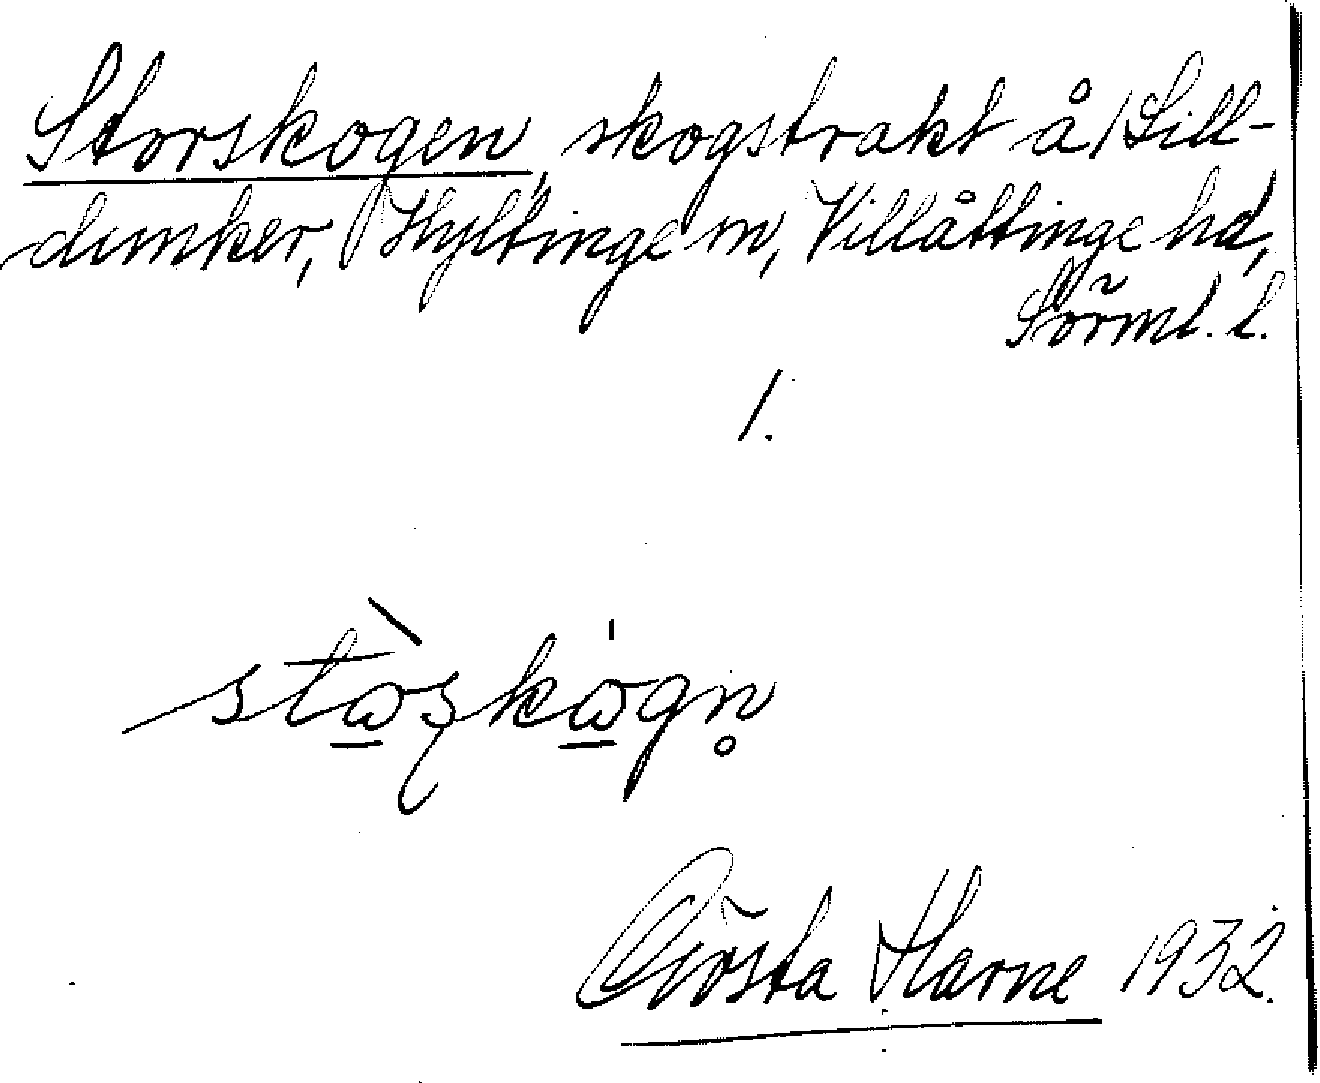 Storskogen, skogstrakt å 1 Lill-
dunker, Hyltinge sn, Villåttinge hd,
Sörml. l.
1.
stὼ̲ʂkω̲̍gn̥
Gösta Harne 1932.